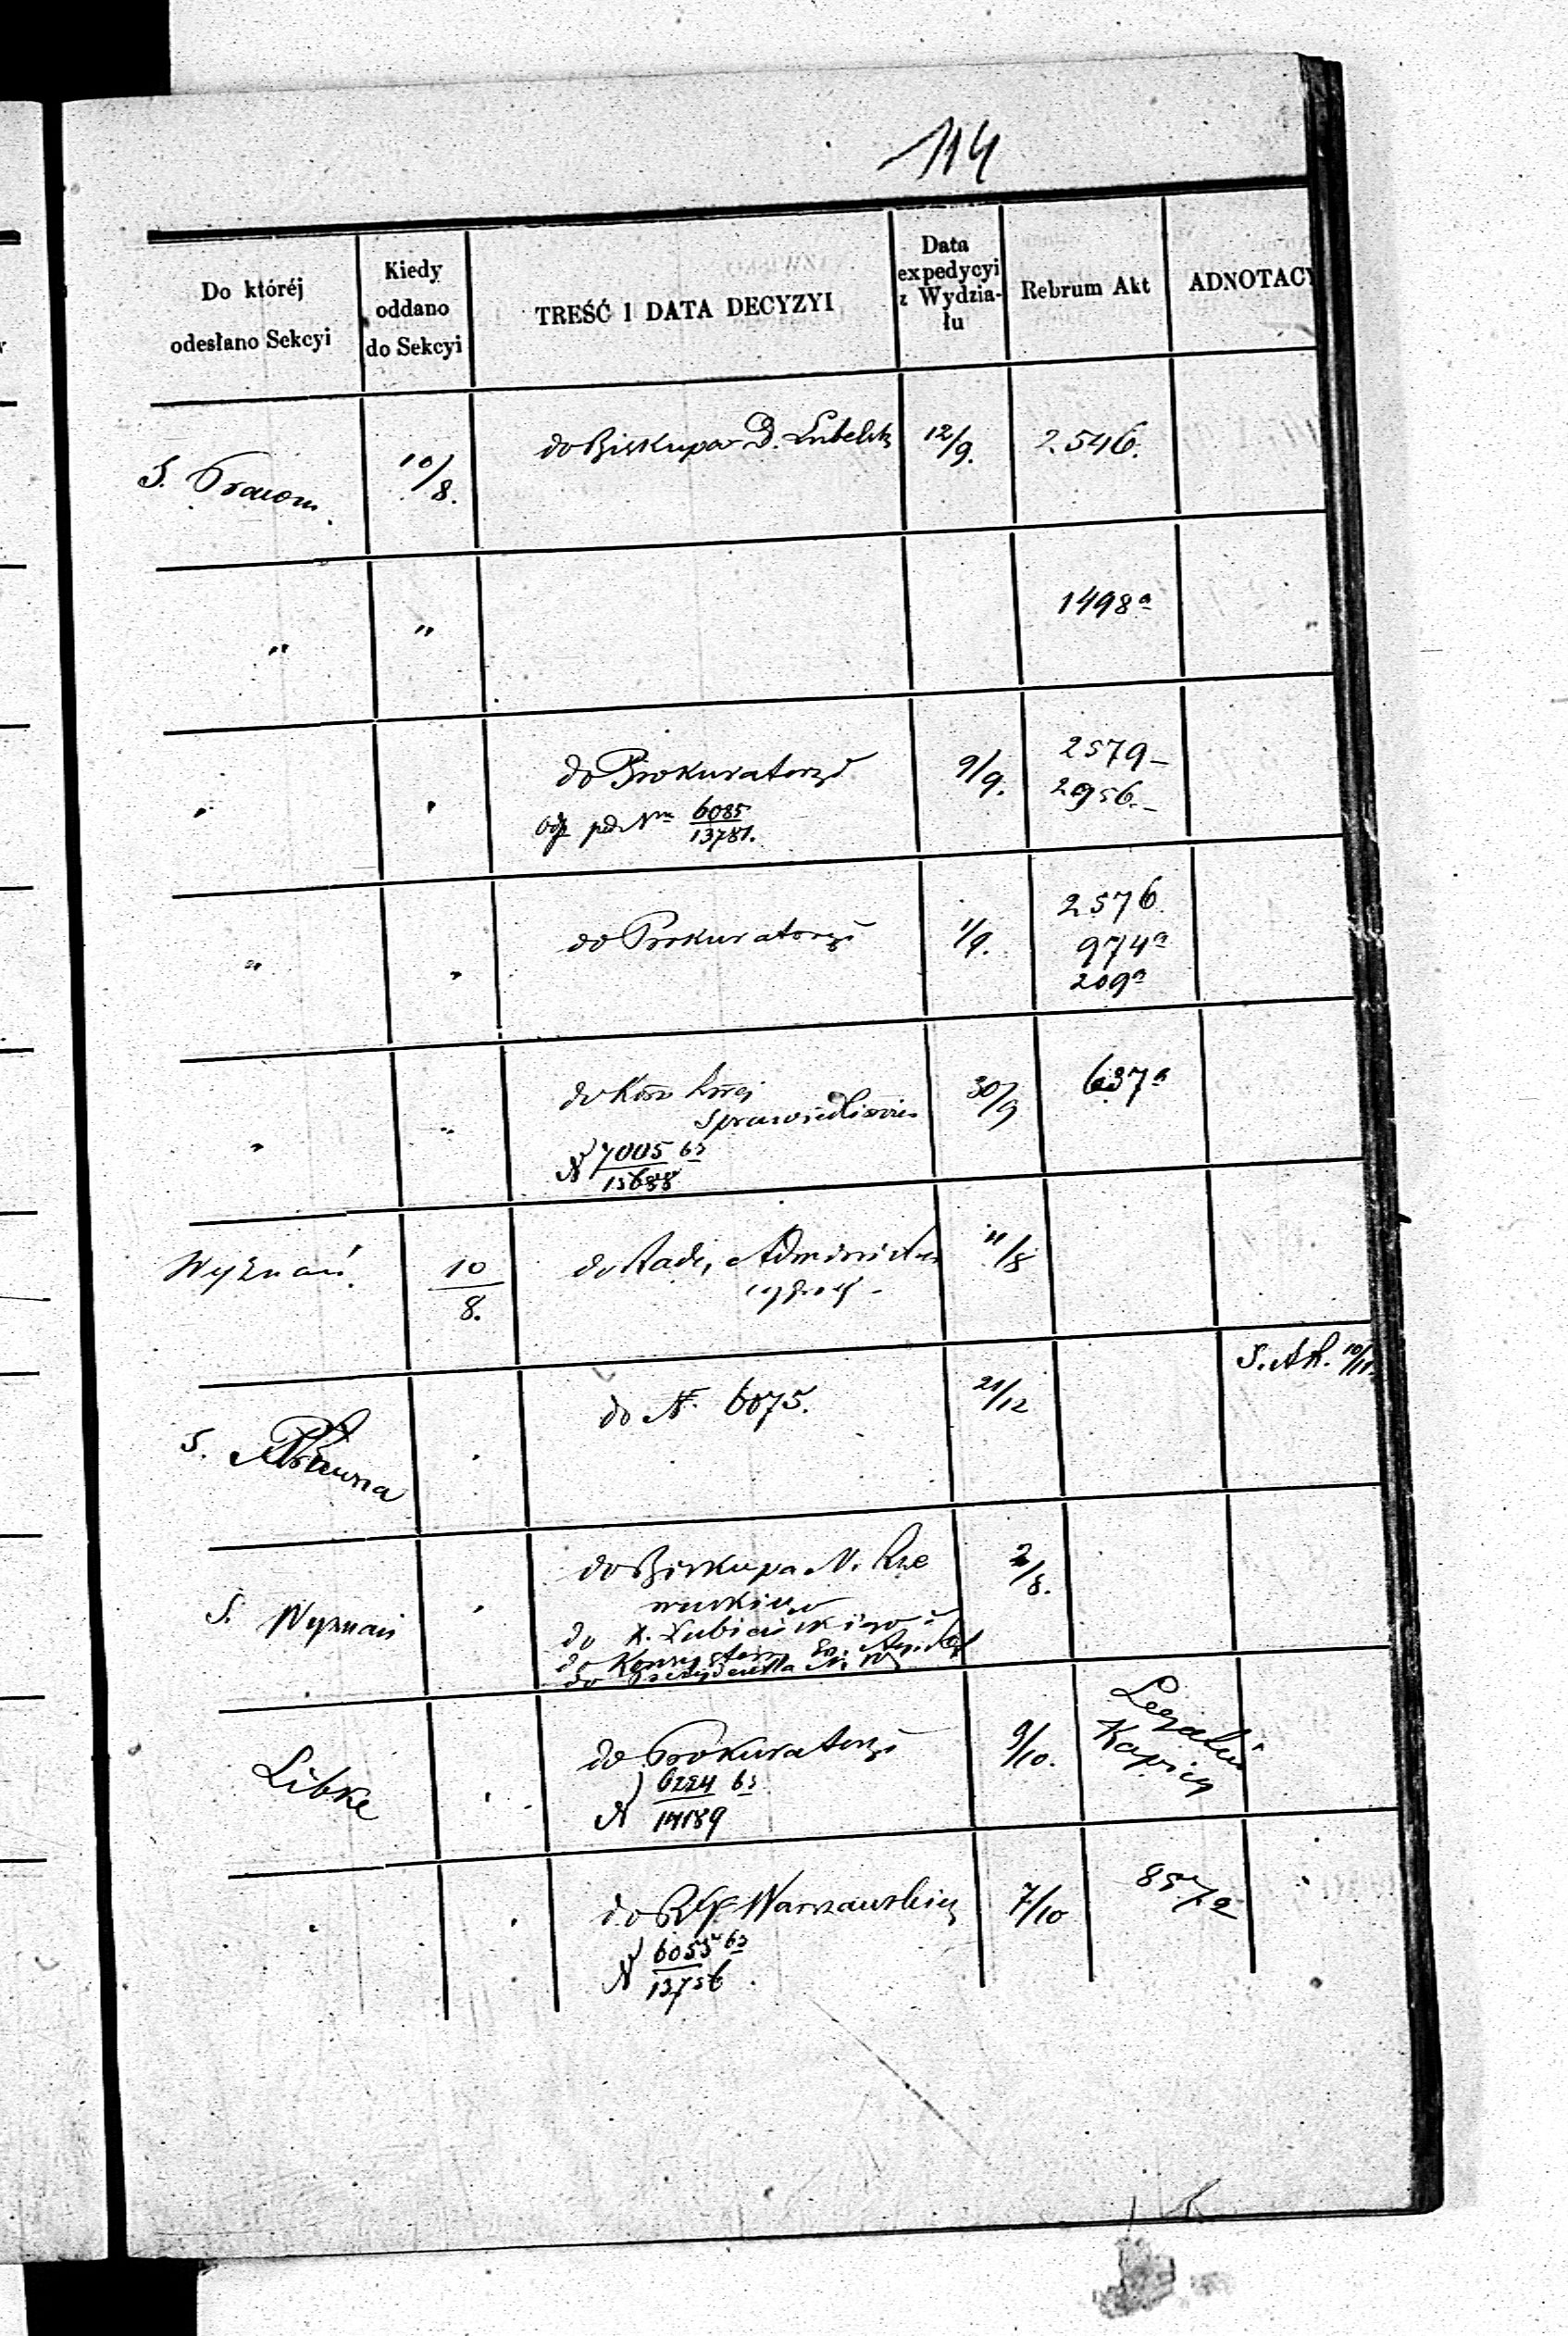 114
Do któréj
odesłano Sekcyi
Kiedy
oddano
do Sekcyi
TREŚĆ I DATA DECYZYI
Data
expedycyi
z Wydzia-
łu
Rebrum Akt
ADNOTACY
S. Prawn.
10/8.
do Biskupa D. Lubelsk
12/9.
2546.
"
"
1498a
"
"
do Prokuratoryi
Odp pod Nm 6085/13781.
9/9.
2579-
2956.-
"
"
do Prokuratoryi
1/9.
2576
974a
209a
"
"
do Kom Rząj
Sprawiedliwości
N 7005 b3/15688
30/9
637a
Wyznań.
10/8.
do Rady Administra
cyjnej -
11/8
S. Prawna
do N. 6075.
21/12
S. Ak. 10/11.
S. Wyznań
do Biskupa N. Rze
wuskiego
do X. Lubieńskiego
do Konsystorz
do Prezydenta
2/8.
Libke
do Prokuratoryi
N 6224 b3/14189
9/10.
Legalne
Kopie
do RG Warszawskiej
N 6055 b3/13756
7/10
857a